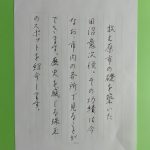 牧之原市の礎を築いた
田沼意次侯。その功績は今
なお、市内の各所で見ることが
できます。歴史を感じる珠玉
のスポットを紹介します。